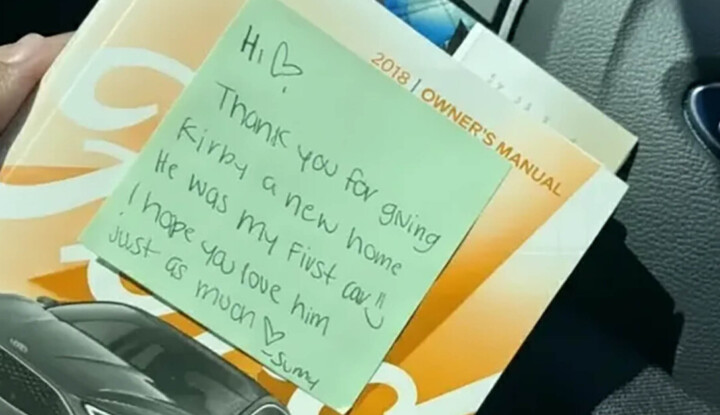 2018 | OWNER'S MANUAL
Hi ♡
Thank you for giving
Kirby a new home
He was my first car!!
I hope you love him
just as much ♡